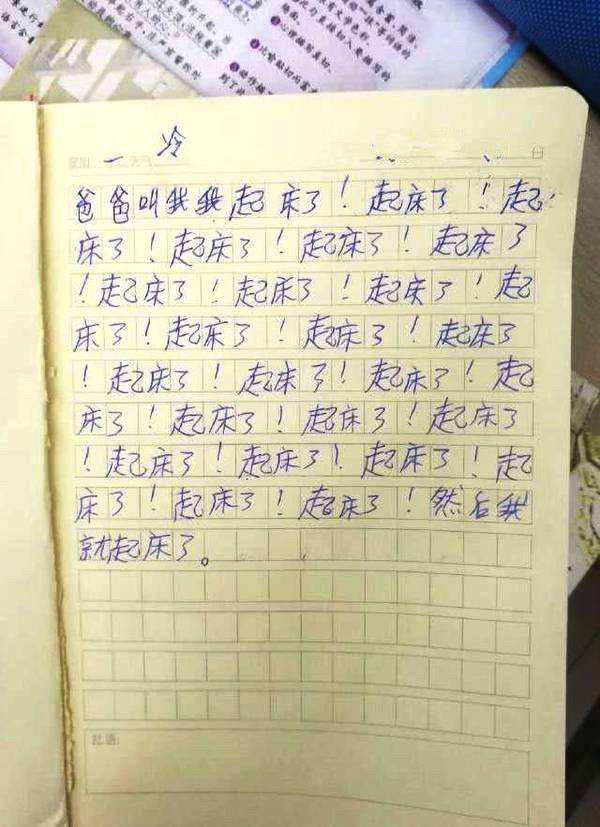 心理描写真切。
星期 一 天气 冷 日
爸爸叫我我起床了！起床了！起
床了！起床了！起床了！起床了
！起床了！起床了！起床了！起
床了！起床了！起床了！起床了
！起床了！起床了！起床了！起
床了！起床了！起床了！起床了
！起床了！起床了！起床了！起
床了！起床了！起床了！然后我
就起床了。
批语: